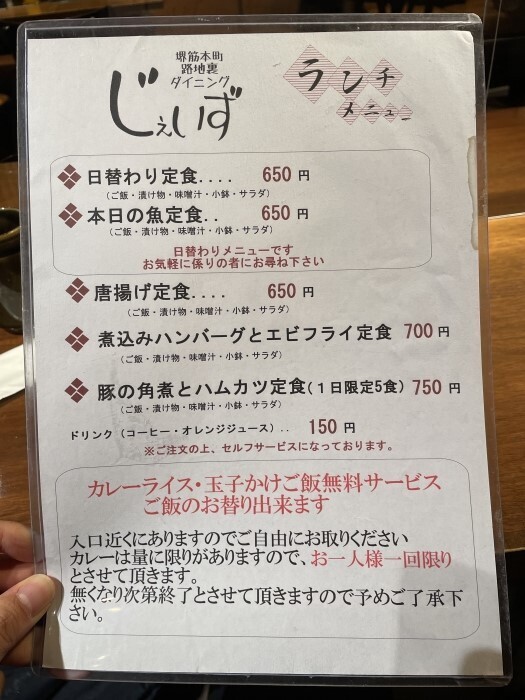 堺筋本町
路地裏
ダイニング
じぇいず
ランチ
メニュー
❖日替わり定食.... 650 円
(ご飯・漬け物・味噌汁・小鉢・サラダ)
❖本日の魚定食.. 650 円
(ご飯・漬け物・味噌汁・小鉢・サラダ)
日替わりメニューです
お気軽に係りの者にお尋ね下さい
❖唐揚げ定食.... 650 円
(ご飯・漬け物・味噌汁・小鉢・サラダ)
❖煮込みハンバーグとエビフライ定食 700 円
(ご飯・漬け物・味噌汁・小鉢・サラダ)
❖豚の角煮とハムカツ定食(1日限定5食) 750 円
(ご飯・漬け物・味噌汁・小鉢・サラダ)
ドリンク(コーヒー・オレンジジュース).. 150 円
※ご注文の上、セルフサービスになっております。
カレーライス・玉子かけご飯無料サービス
ご飯のお替り出来ます
入口近くにありますのでご自由にお取りください
カレーは量に限りがありますので、お一人様一回限り
とさせて頂きます。
無くなり次第終了とさせて頂きますので予めご了承下
さい。